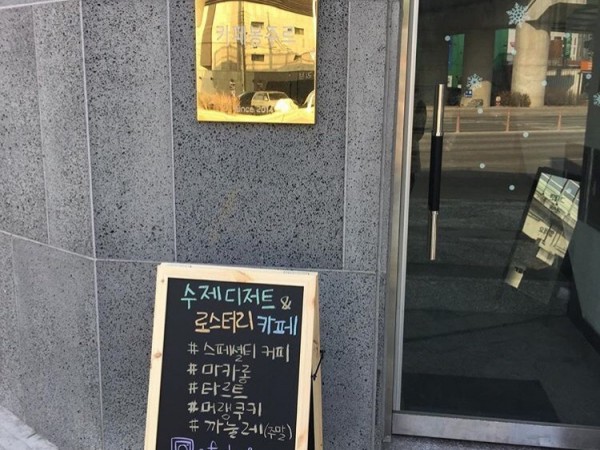 카페봉주르
since 2014
수제디저트 &
로스터리 카페
# 스페셜티 커피
# 마카롱
# 타르트
# 머랭쿠키
# 까눌레(주말)